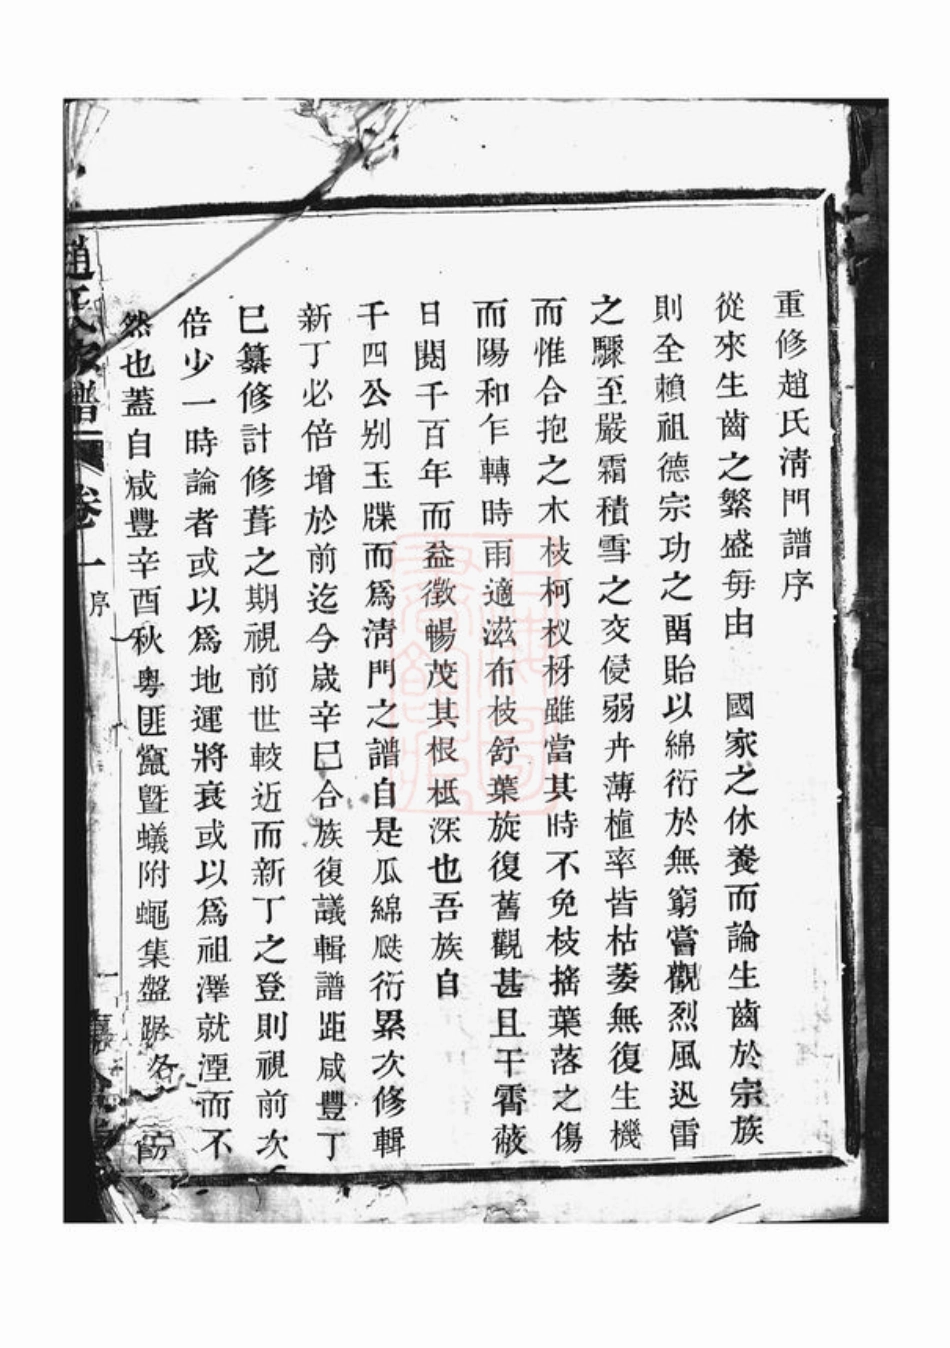 重修趙氏清門譜序
從來生齒之繁盛毎由 國家之休養而論生齒於宗族
則全賴祖德宗功之畱貽以綿衍於無窮嘗觀烈風迅雷
之驟至嚴霜積雪之交侵弱卉薄植率皆枯萎無復生機
而惟合抱之木枝柯杈枒雖當其時不免枝搖葉落之傷
而陽和乍轉時雨適滋布枝舒葉旋復舊觀甚且干霄蔽
日閱千百年而益徵暢茂其根柢深也吾族自
千四公别玉牒而爲清門之譜自是瓜綿瓞衍累次修輯
新丁必倍增於前迄今歲辛巳合族復議輯譜距咸豐丁
巳纂修計修葺之期視前世較近而新丁之登則視前次
倍少一時論者或以爲地運將衰或以爲祖澤就湮而不
然也蓋自咸豐辛酉秋粤匪竄曁蟻附蠅集盤踞各
趙氏家譜 卷一 序